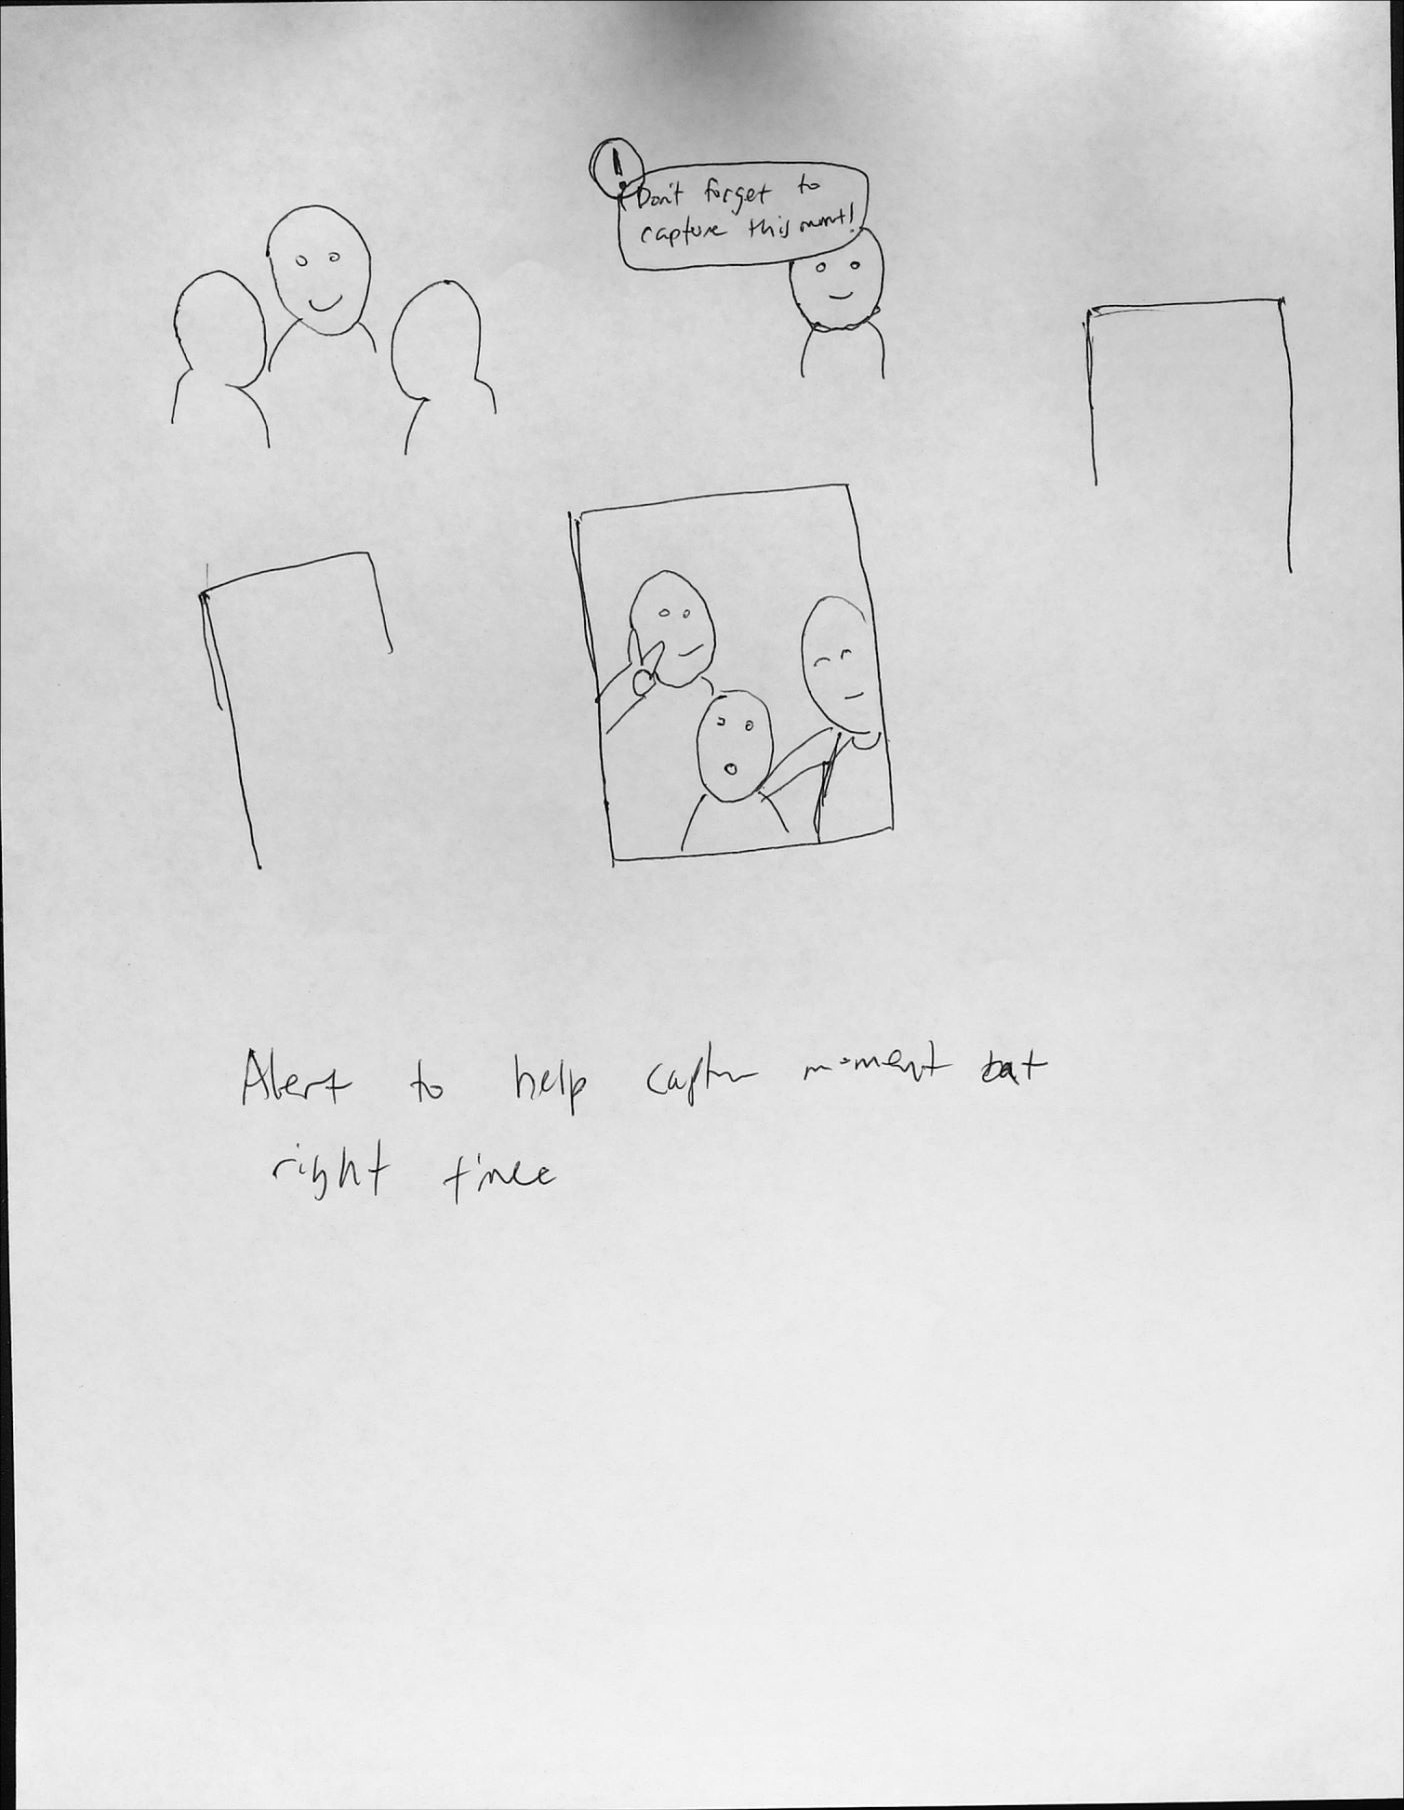 !
Don't forget to
capture this momt!
Alert to help captu moment at
right time